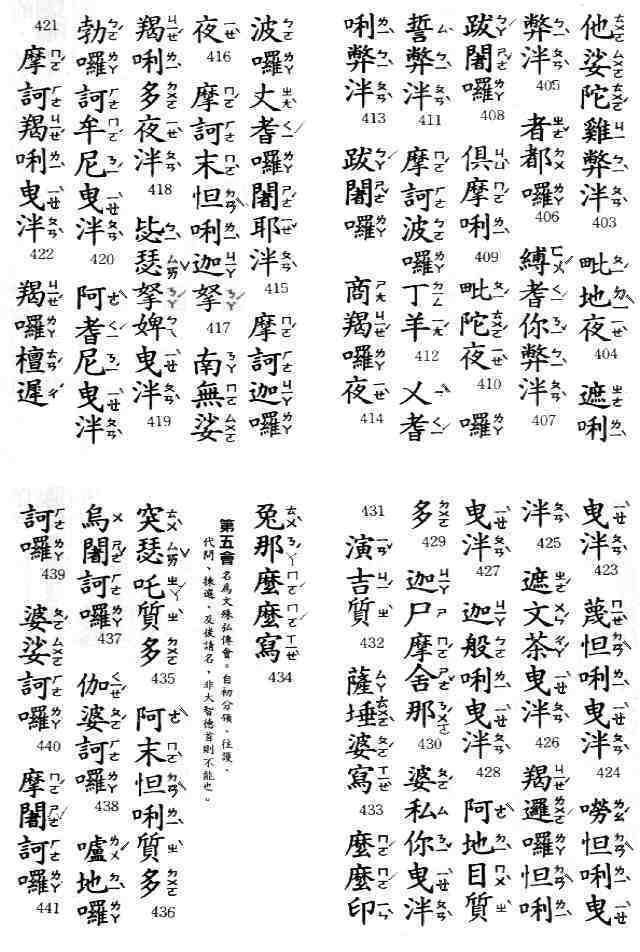 他娑陀雞弊泮 403 毗地夜 404 遮唎
弊泮 405 者都囉 406 縛耆你弊泮 407
跋闍囉 408 俱摩唎 409 毗陀夜 410 囉
誓弊泮 411 摩訶波囉丁羊 412 乂耆
唎弊泮 413 跋闍囉 商羯囉夜 414
波囉丈耆囉闍耶泮 415 摩訶迦囉
夜 416 摩訶末怛唎迦拏 417 南無娑
羯唎多夜泮 418 毖瑟拏婢曳泮 419
勃囉訶牟尼曳泮 420 阿耆尼曳泮
421 摩訶羯唎曳泮 422 羯囉檀遲
曳泮 423 蔑怛唎曳泮 424 嘮怛唎曳
泮 425 遮文茶曳泮 426 羯邏囉怛唎
曳泮 427 迦般唎曳泮 428 阿地目質
多 429 迦尸摩舍那 430 婆私你曳泮
431 演吉質 432 薩埵婆寫 433 麼麼印
兔那麼麼寫 434
第五會 名為文殊弘傳會。自初分領、往護、
代問、揀選、及後請名,非大智德首則不能也。
突瑟吒質多 435 阿末怛唎質多 436
烏闍訶囉 437 伽婆訶囉 438 嚧地囉
訶囉 439 婆娑訶囉 440 摩闍訶囉 441